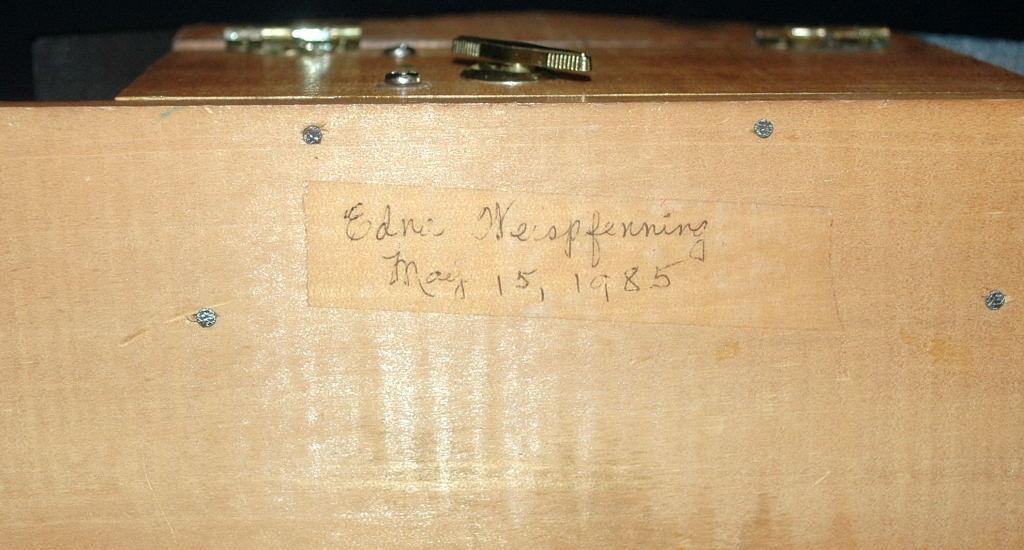 Edna Weispfenning
May 15, 1985